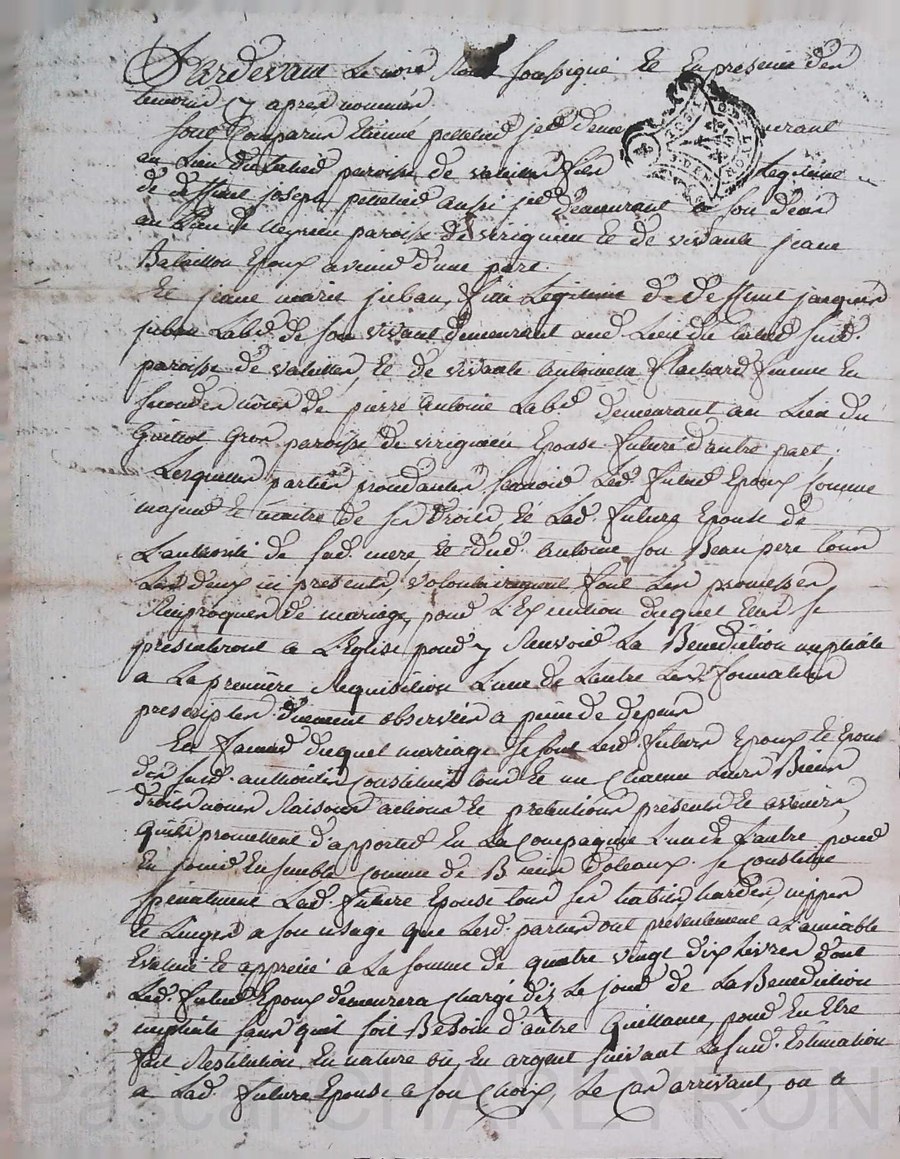 Pardevant Le no.re Royal soussigné et En presence des
temoins y apres nommés
sont comparus Etienne pelletier demeurant
au Lieu du paroisse de valeille fils Legitime
de deffunt joseph pelletier aussi demeurant a son deces
au Lieu de paroisse de virigneu et de vivante jeane
Bataillon Epoux avenir d'une part
Et jeane marie juban, fille Legitime de deffunt jacques
juban Lab.r de son vivant demeurant aud. Lieu du susd.
paroisse de valeille, et de vivante antoinette flachard femme En
secondes nôces de pierre antoine Lab.r demeurant au Lieu du
gros paroisse de virigneu Epouse future d'autre part,
Lesquelles parties procedantes scavoir Led. futur Epoux comme
majeur et maitre de ses droits, et Lad. future Epouse de
L'authorité de sad. mere, et dud. antoine son Beau pere tous
Les deux ici presents, volontairement font Les promesses
Reciproques de mariage, pour L'Execution duquel Elles se
presenteront a L'Eglise pour y Recevoir La Benediction nuptiale
a La premiere Requisition L'une de L'autre Les formalités
prescriptes düement observées a peine de depens
En faveur duquel mariage se sont Lesd. futurs Epoux et Epouse
des susd. authorités constitués tous et un chacun Leurs Biens
droits noms Raisons actions et pretentions presents et avenirs,
Quils promettent d'apporter En La compagnie L'un de L'autre pour
En jouir Ensemble comme de Biens dotaux. se constitue
specialement Lad. future Epouse tous ses habits, hardes, nippes
et Linges a son usage que Lesd. parties ont presentement a L'amiable
Evalué et apprecié a La somme de quatre vingt dix Livres dont
Led. futur Epoux demeurera chargé dès Le jour de La Benediction
nuptiale sans quil soit Besoin d'autre Quittance, pour En Etre
fait Restitution En nature ou En argent suivant La susd. Estimation
a Lad. future Epouse a son choix, Le cas arrivant, ou a
Pascal CHAREYRON